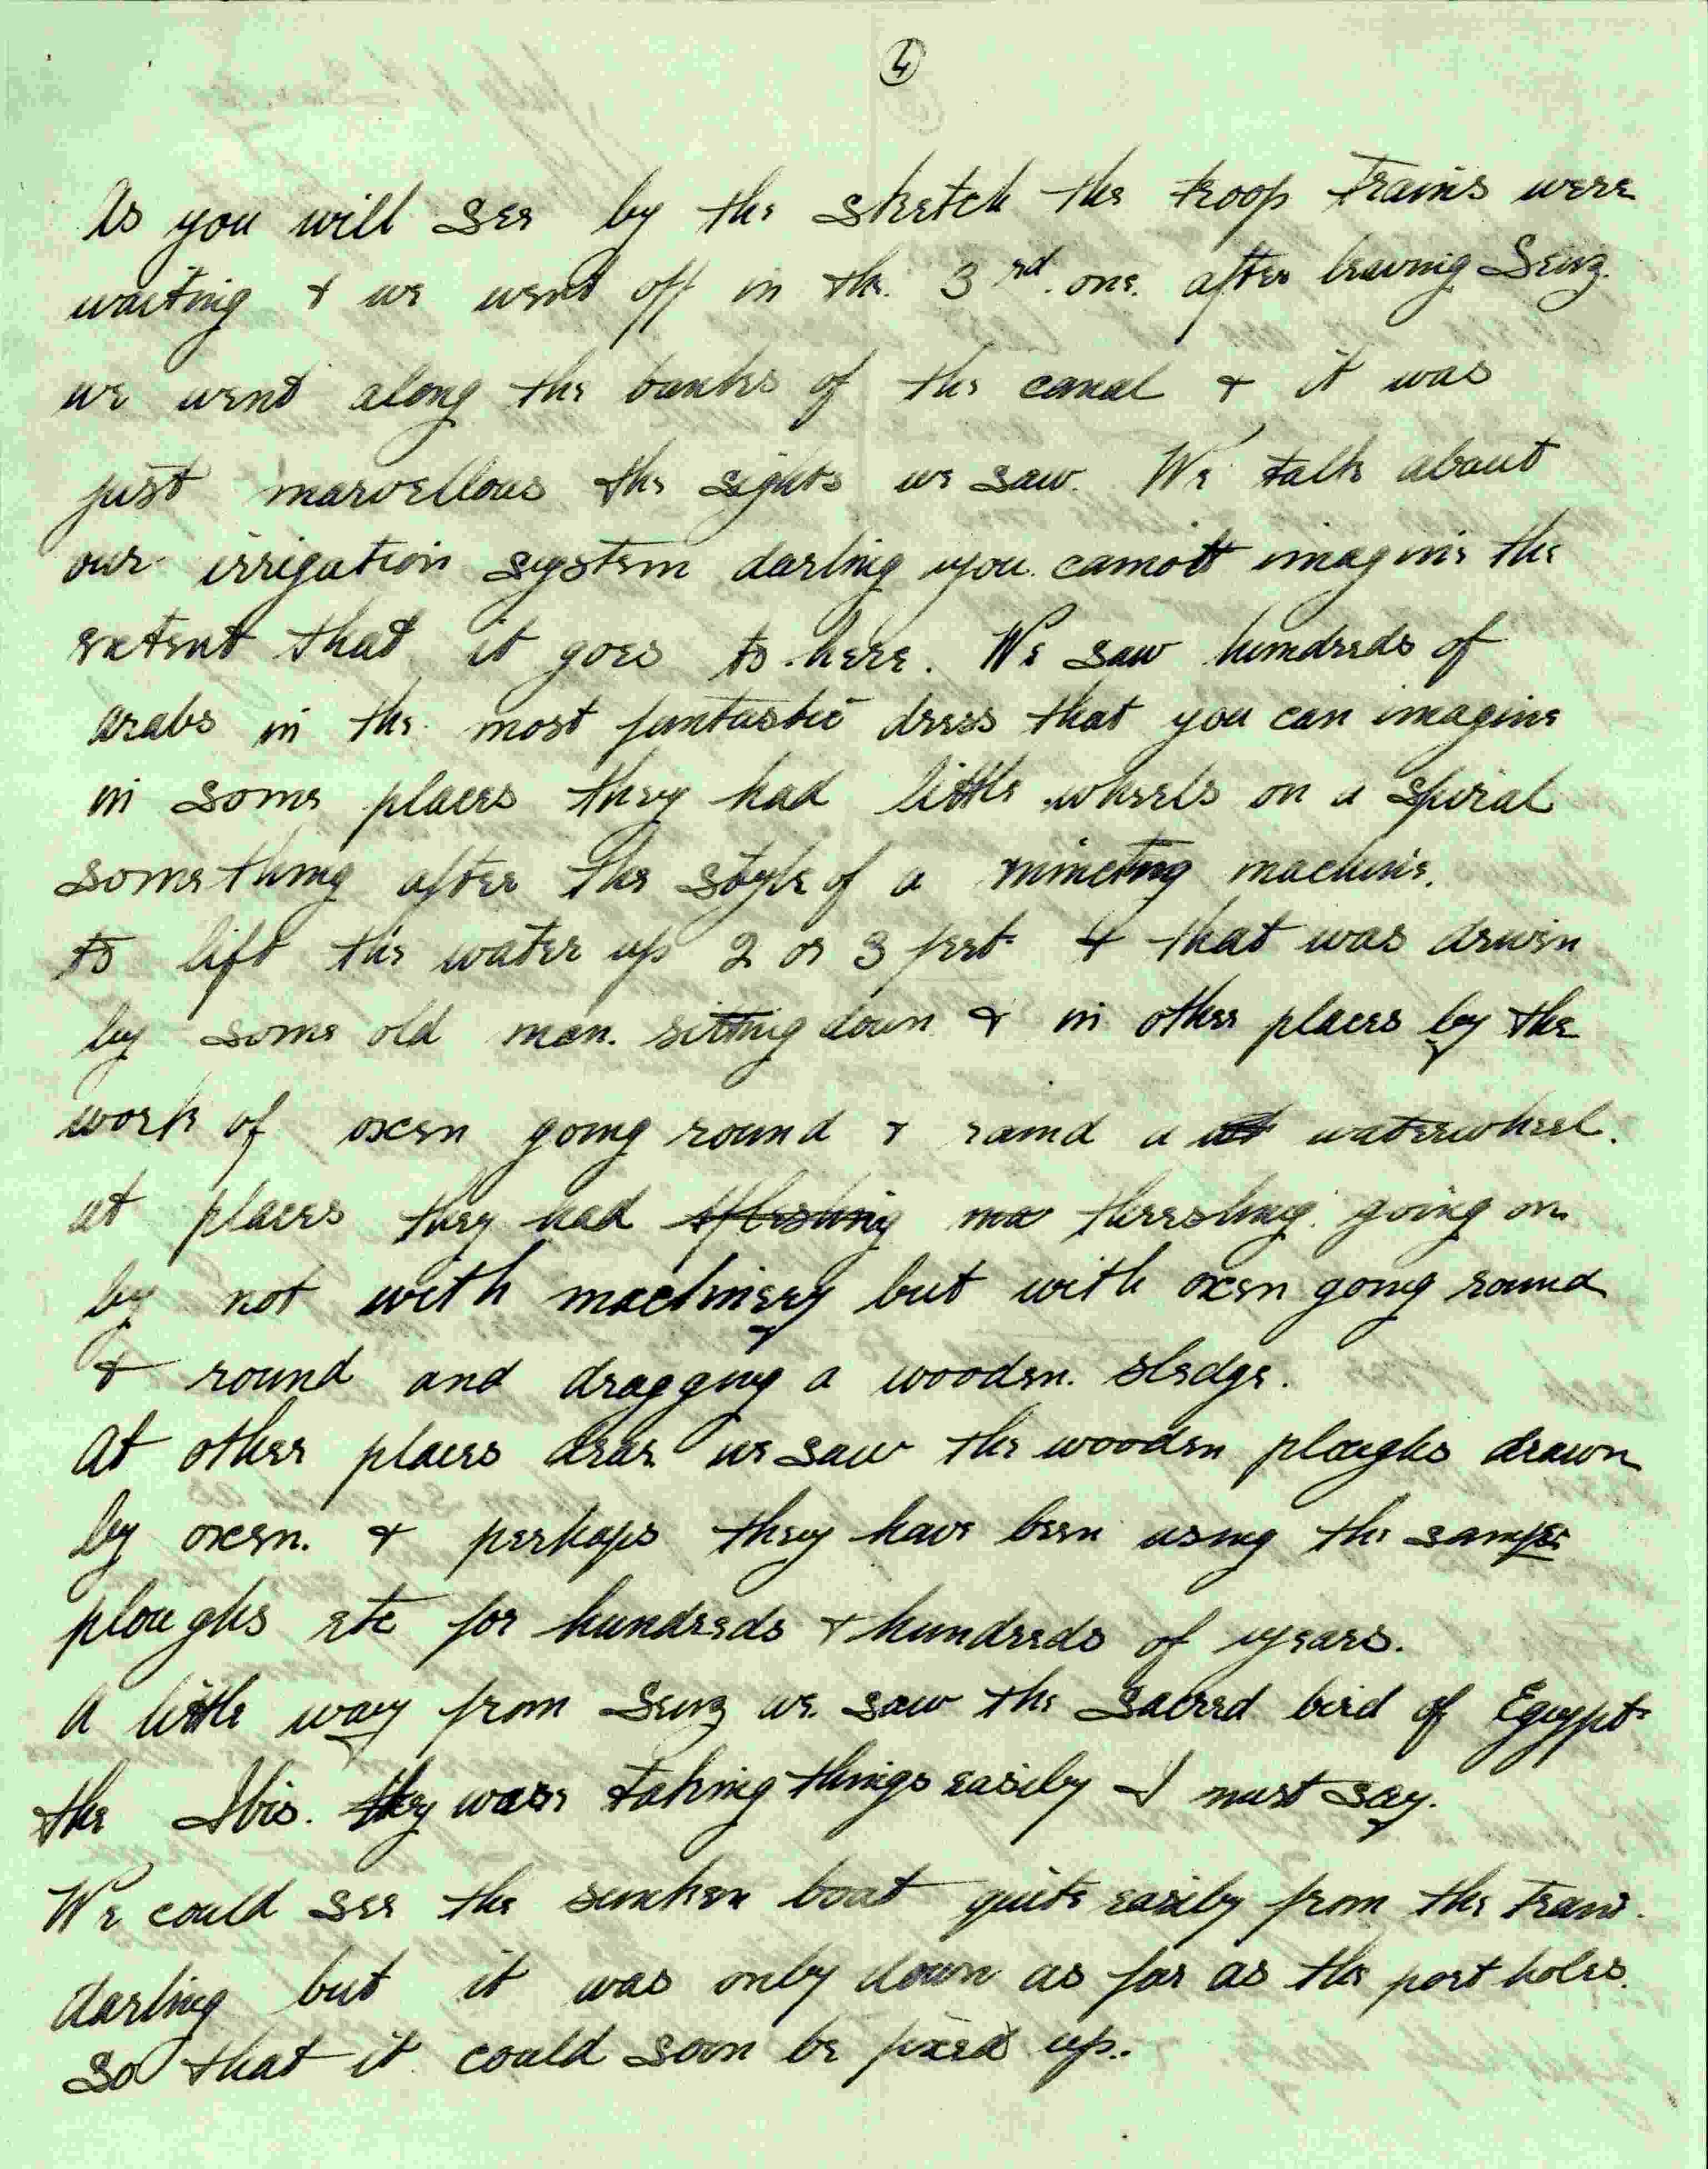 4
As you will see by the sketch the troop trains were
waiting & we went off in the 3rd. one. after leaving Seuz.
we went along the banks of the canal & it was
just marvellous the sights we saw. We talk about
our irrigation system darling you cannott imagine the
extent that it goes to here. We saw hundreds of
arabs in the most fantastic dress that you can imagine
in some places they had little wheels on a spiral
something after the style of a mincing machine.
to lift the water up 2 or 3 feet & that was driven
by some old man. sitting down & in other places by the
work of oxen going round & round a waterwheel.
at places they had threshing going on
by not with machinery but with oxen going round
& round and dragging a wooden. sledge.
At other places dear we saw the wooden ploughs drawn
by oxen. & perhaps they have been using the same
ploughs etc for hundreds & hundreds of years.
A little way from Seuz we saw the sacred bird of Egypt
the Ibis. they were taking things easily I must say.
We could see the sunken boat quite easily from the train.
darling but it was only down as far as the port holes.
So that it could soon be fixed up.